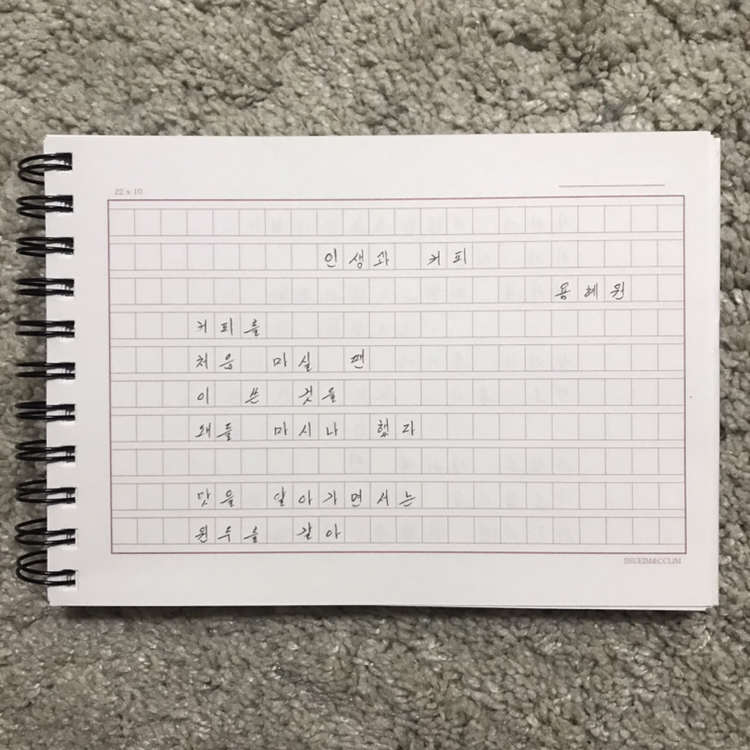 22 x 10
인생과 커피
용혜원
커피를
처음 마실 땐
이 쓴 것을
왜들 마시나 했다
맛을 알아가면서는
원두를 갈아
SSUEIM&CCLIM